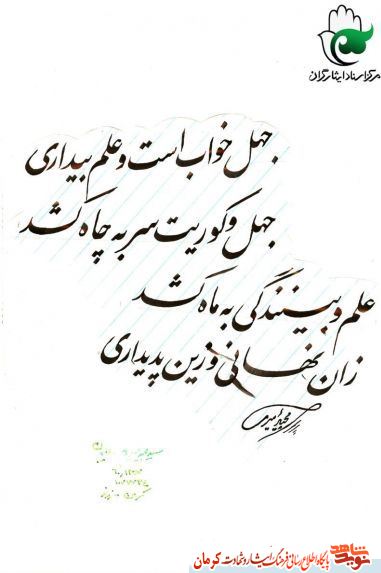 مرکز اسناد ایثارگران
جهل خواب است و علم بیداری
جهل و کوریت سر به چاه کشد
علم و بینندگی به ماه کشد
زان نهانی و زین پدیداری
شاهد
نوید
پایگاه اطلاع رسانی فرهنگ ایثار و شهادت کرمان